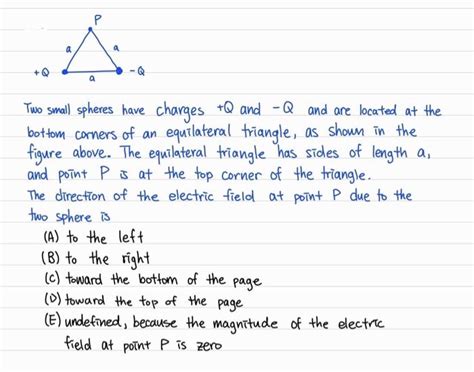 P
a a
+Q -Q
a
Two small spheres have charges +Q and -Q and are located at the
bottom corners of an equilateral triangle, as shown in the
figure above. The equilateral triangle has sides of length a,
and point P is at the top corner of the triangle.
The direction of the electric field at point P due to the
two sphere is
(A) to the left
(B) to the right
(C) toward the bottom of the page
(D) toward the top of the page
(E) undefined, because the magnitude of the electric
field at point P is zero